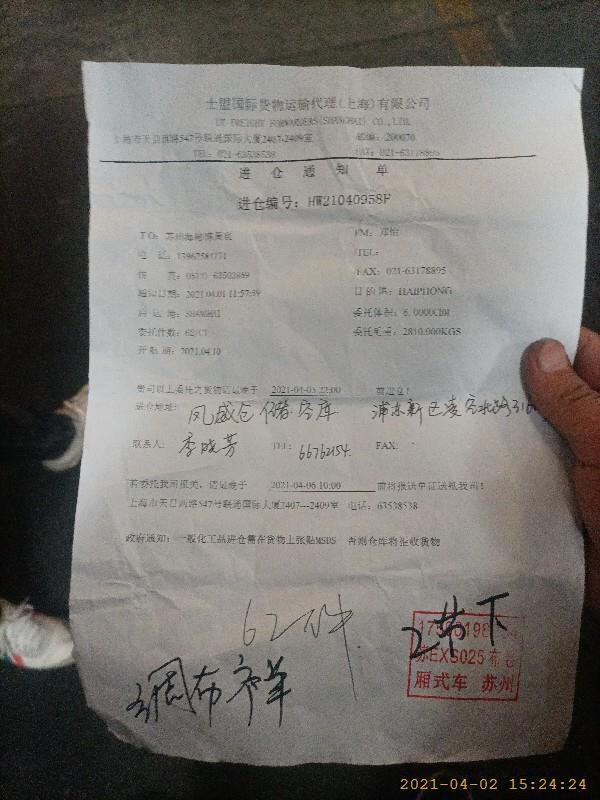 士盟国际货物运输代理(上海)有限公司
UT FREIGHT FORWARDERS(SHANGHAI) CO., LTD.
上海市天目西路547号联通国际大厦2407-2409室 邮编: 200070
TEL: 021-63538538 FAX: 021-63178895
进 仓 通 知 单
进仓编号: HW21040958F
TO: 苏州海
电 话: FAX: 021-63178895
通知日期: 2021.04.01 11:57:59 目的港: HAIPHONG
启运港: SHANGHAI 委托体积: 6.0000CBM
委托件数: 62/CT 委托毛重: 2810.000KGS
开航期: 2021.04.10
贵司以上委托之货物请最晚于 2021-04-05 22:00 前进仓!
进仓地址: 凤 仓储 库 浦东新区凌
联系人: 李晓芳 TEL: 66762154 FAX:
若委托我司报关, 请最晚于 2021-04-06 10:00 前将报送单证送抵我司!
上海市天目西路547号联通国际大厦2407---2409室 电话: 63538538
政府通知: 一般化工品进仓需在货物上张贴MSDS 否则仓库将拒收货物
62件
2节下
苏EXS025
厢式车 苏州
2021-04-02 15:24:24